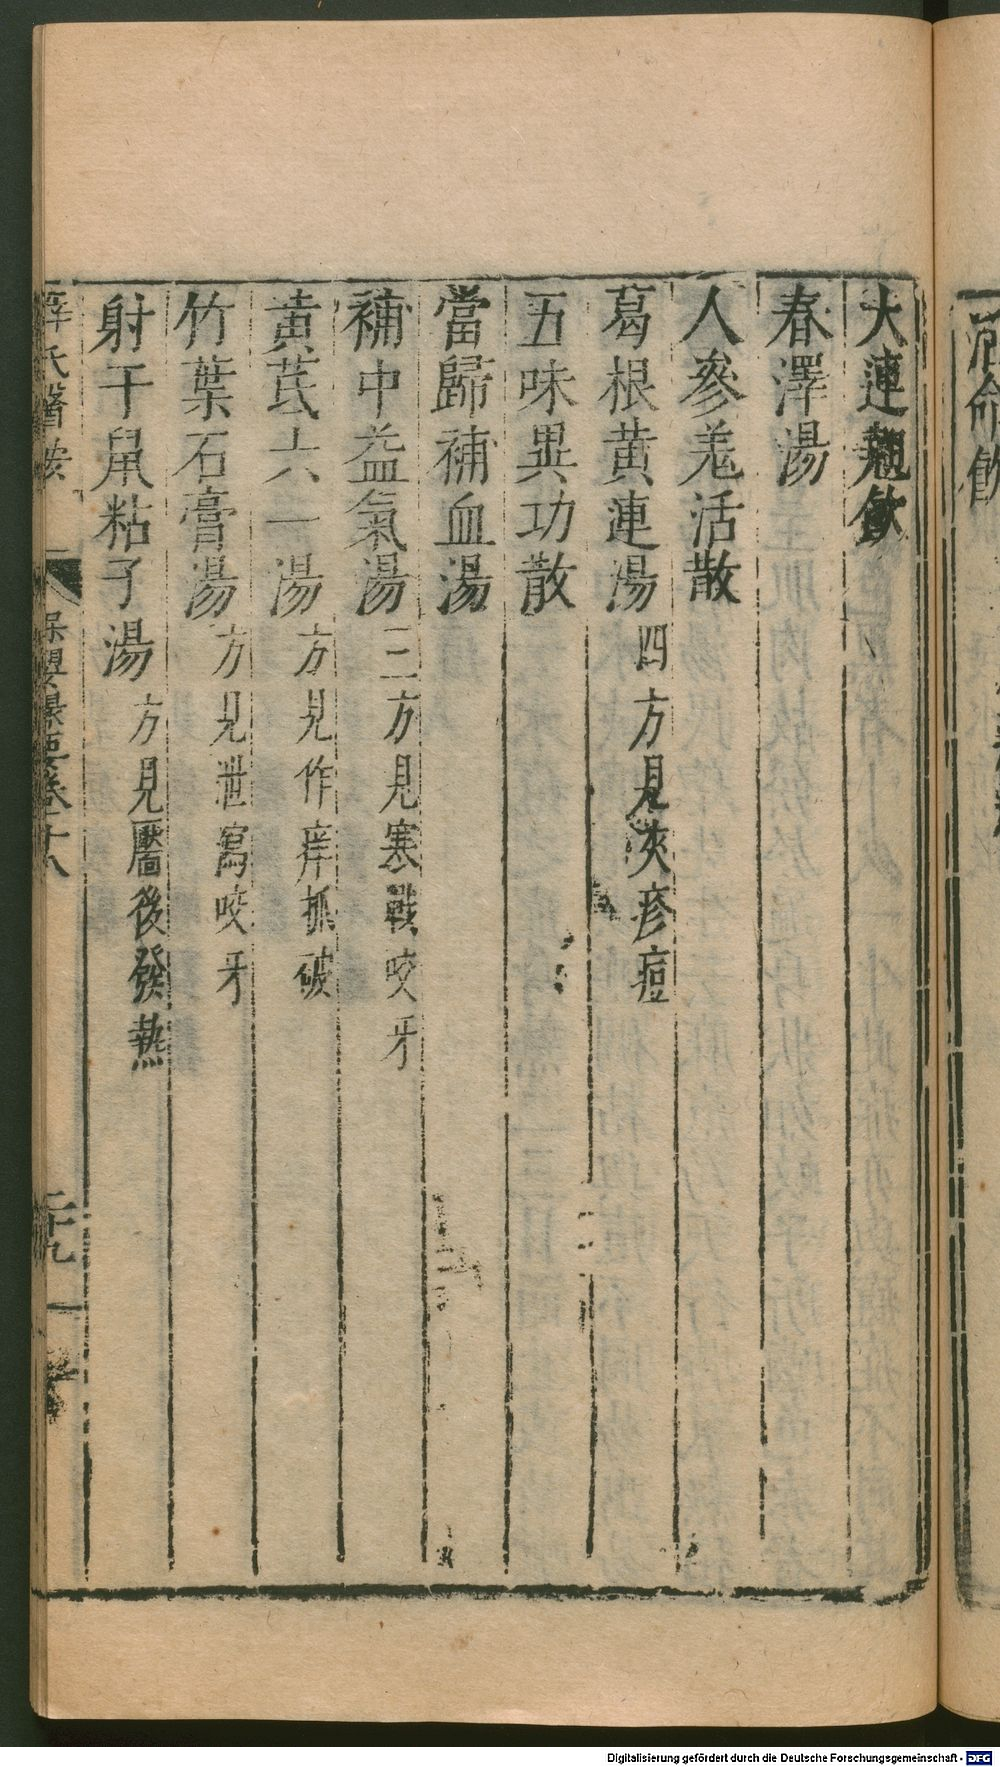 大連翹飲
春澤湯
人參羗活散
葛根黄連湯 四方見夾疹痘
五味異功散
當歸補血湯
補中益氣湯 三方見寒戰咬牙
黃芪六一湯 方見作痒抓破
竹葉石膏湯 方見泄瀉咬牙
射干鼠粘子湯 方見靨後發熱
薛氏醫按 保嬰撮要卷十八 二十九
Digitalisierung gefördert durch die Deutsche Forschungsgemeinschaft - DFG